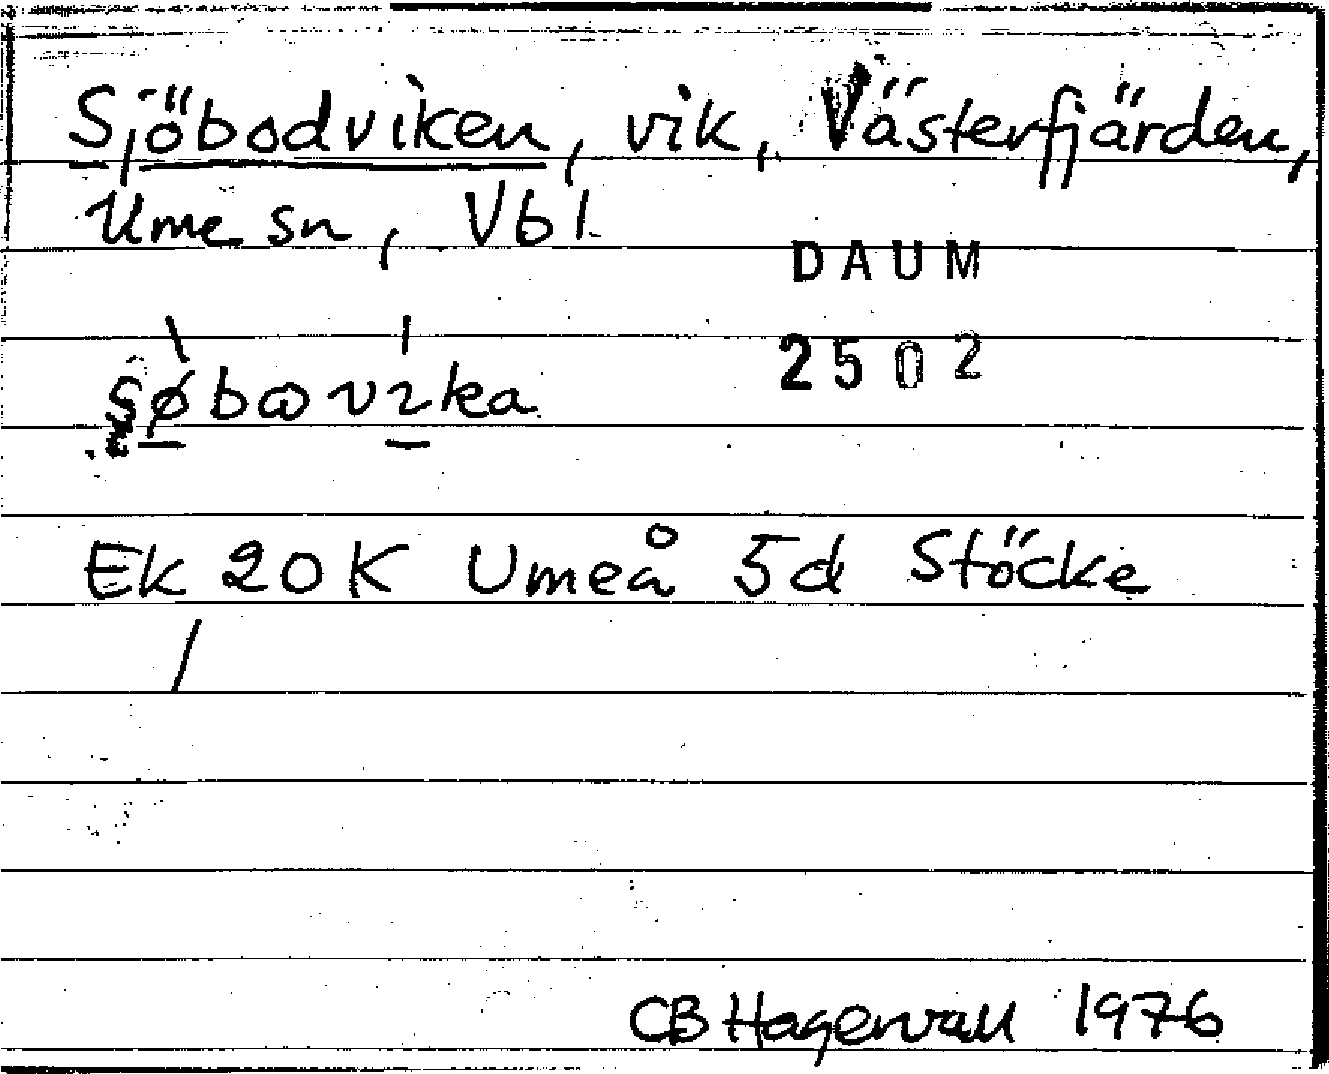 Sjöbodviken, vik, Västerfjärden,
Ume sn, Vbl
DAUM
2502
Ek 20 K Umeå 5d Stöcke
/
CB Hagervall 1976